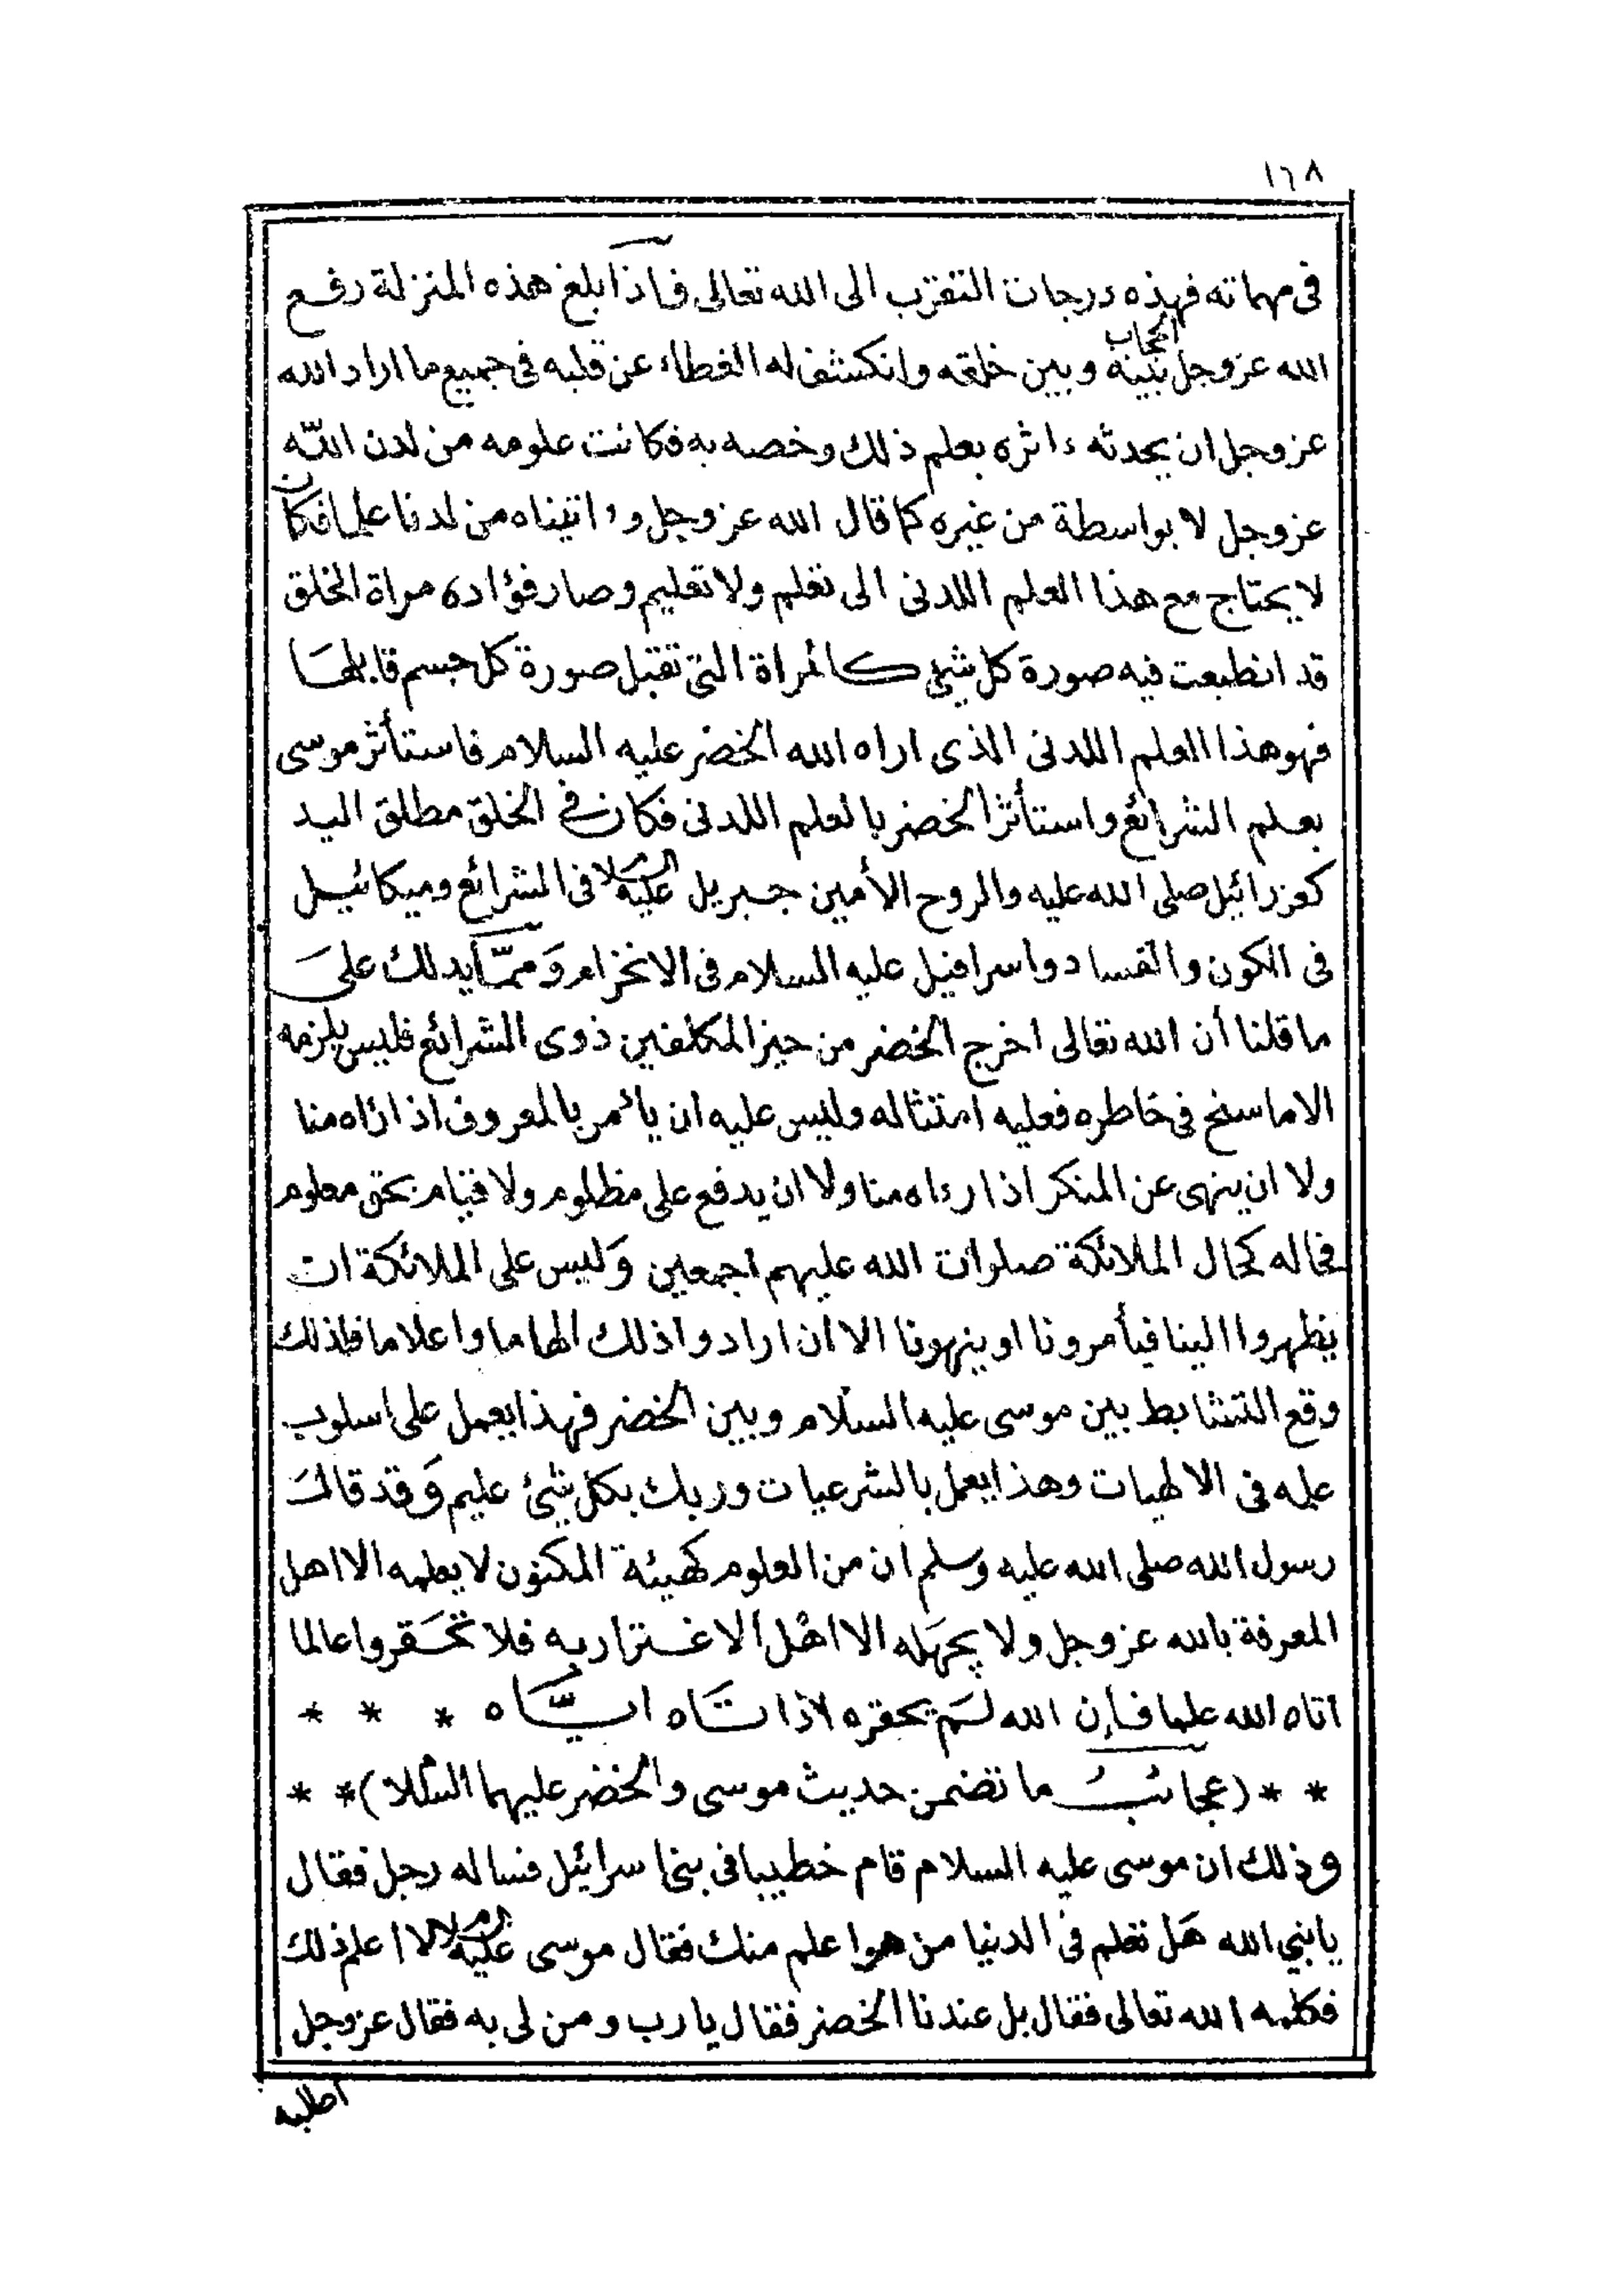 ١٦٨
فى مهماته فهذه درجات التقرب الى الله تعالى فاذا بلغ هذه المنزلة رفع
الله عز وجل الحجاب بينه وبين خلقه وانكشف له الغطاء عن قلبه فى جميع ما اراد الله
عز وجل ان يحدثه ءاثره بعلم ذلك وخصه به فكانت علومه من لدن الله
عز وجل لا بواسطة من غيره كما قال الله عز وجل وءاتيناه من لدنا علما فكان
لا يحتاج مع هذا العلم اللدنى الى تعلم ولا تعليم وصار فؤاده مراة الخلق
قد انطبعت فيه صورة كل شئ كالمراة التى تقبل صورة كل جسم قابلها
فهو هذا العلم اللدنى الذى اراه الله الخضر عليه السلام فاستأثر موسى
بعلم الشرائع واستأثر الخضر بالعلم اللدنى فكان فى الخلق مطلق اليد
كعزرائيل صلى الله عليه والروح الأمين جبريل عليه السلام فى الشرائع وميكائيل
فى الكون والفساد واسرافيل عليه السلام فى الانخزام وَممّا يدلك على
ما قلنا أن الله تعالى اخرج الخضر من حيز المكلفين ذوى الشرائع فليس يلزمه
الا ما سنح فى خاطره فعليه امتثاله وليس عليه ان يأمر بالمعروف اذا راه منا
ولا ان ينهى عن المنكر اذا رءاه منا ولا ان يدفع على مظلوم ولا قيام بحق معلوم
فحاله كحال الملائكة صلوات الله عليهم اجمعين وَليس على الملائكة ان
يظهروا الينا فيأمرونا او ينهونا الا ان ارادوا ذلك الهاما واعلاما فلذلك
وقع التشابط بين موسى عليه السلام وبين الخضر فهذا يعمل على اسلوب
علمه فى الالهيات وهذا يعمل بالشرعيات وربك بكل شئ عليم وَقد قال
رسول الله صلى الله عليه وسلم ان من العلوم كهيئة المكنون لا يعلمه الا اهل
المعرفة بالله عز وجل ولا يجهَله الا اهْل الاغتراربه فلا تحَقروا عالما
اتاه الله علما فإن الله لَم يحقره اذا تَاه ايّاه * * *
* * (عجائبُ ما تضمن حديث موسى والخضر عليهما السلام) * *
وذلك ان موسى عليه السلام قام خطيبا فى بنى اسرائيل فساله رجل فقال
يا نبي الله هَل تعلم فى الدنيا من هو اعلم منك فقال موسى عليه السلام لا اعلم ذلك
فكلمه الله تعالى فقال بل عندنا الخضر فقال يا رب ومن لى به فقال عز وجل
اطلبه